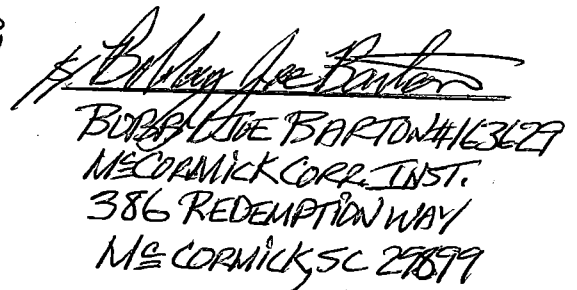 s/ Bobby Joe Barton
BOBBY JOE BARTON #163629
McCORMICK CORR. INST.
386 REDEMPTION WAY
McCORMICK, SC 29899